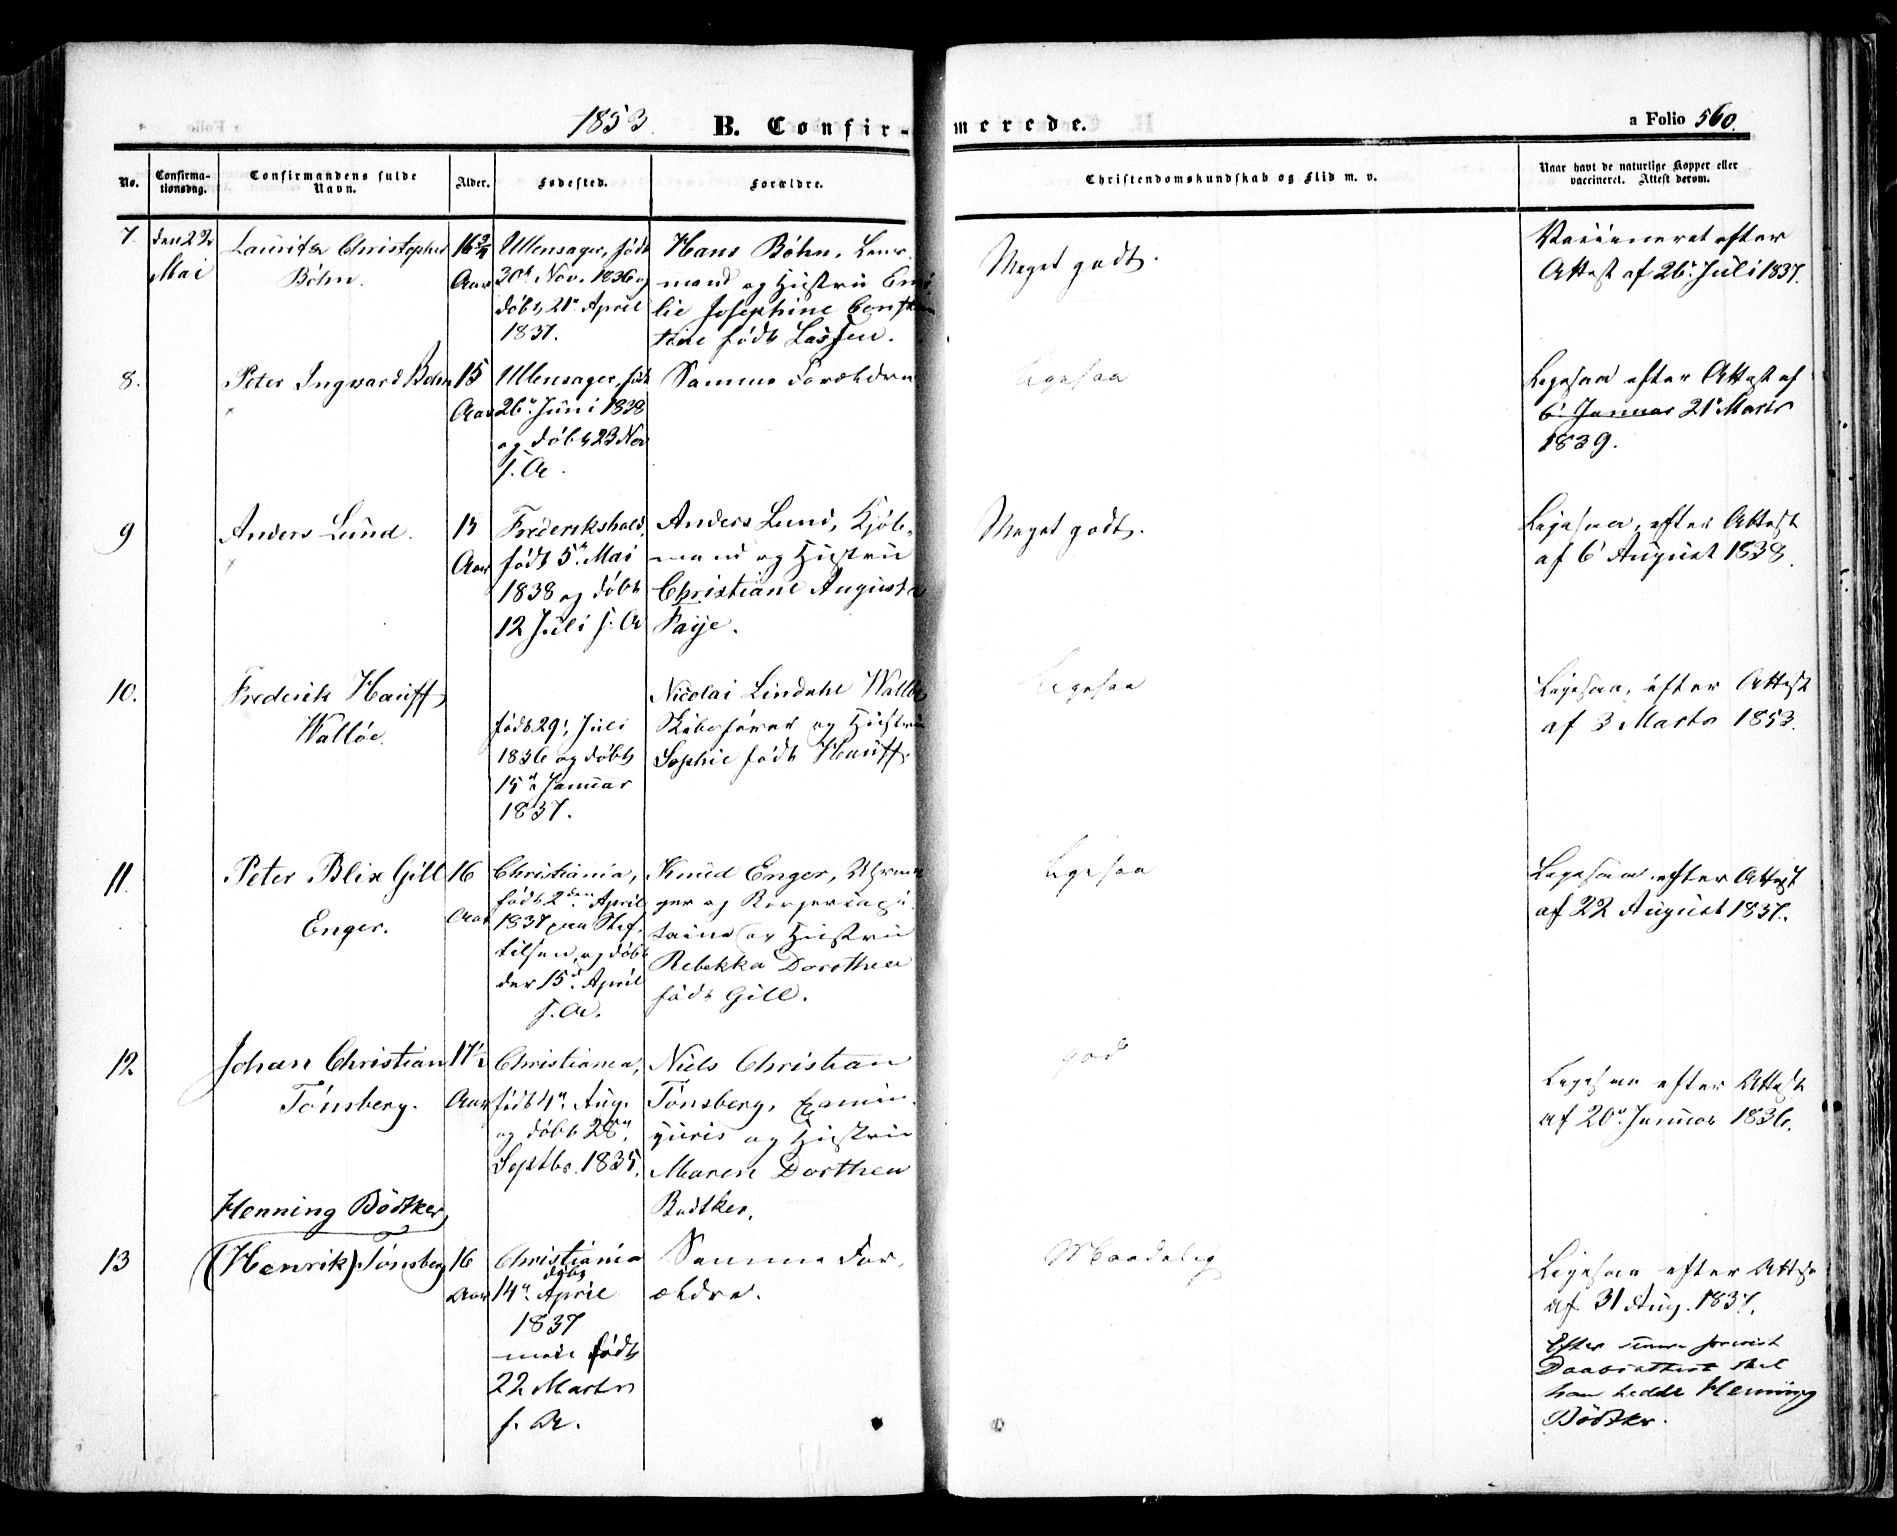 1853. B. Confirmerede. a Folio 560.
No. Confirmationsdag. Confirmandens fulde Navn. Alder. Fødested. Forældre. Christendomskundskab og Flid m. v. Naar havt de naturlige Kopper eller vaccineret. Attest derom.
7. den 22 Laurits Christopher 16 Ullensager, født Hans Bøhn, Lens- Meget godt. Vaccineret efter
Mai Bøhn. Aar 30te Nov. 1836 og mand og Hustru Emi Attest af 26. Juli 1837.
døbt 21. April lie Josephine Constan
1837. tine født Lassen.
8. Peter Ingvard Bøhn 15 Ullensager, født Samme Forældre Ligesaa Ligesaa efter Attest af
Aar 26. Juni 1838 6 Januar 21. Marts
og døbt 23 Nov 1839.
s. A.
9 Anders Lund. 15 Frederikshald, Anders Lund, Kjøb- Meget godt. Ligesaa, efter Attest
Aar født 5. Mai mand og Hustru af 6 August 1838.
1838 og døbt Christiane Augusta
12 Juli s. A Faye.
10. Frederik Hauff Nicolai Lindahl Walløe Ligesaa Ligesaa, efter Attest
Walløe. født 29. Juli Skibsfører og Hustru af 3 Marts 1853.
1836 og døbt Sophie født Hauff.
15. Januar
1837.
11. Peter Blix Gill 16 Christiania, Knud Enger, Ligesaa Ligesaa efter Attest
Enger. Aar født 2den April ger og Borgercapi af 22 August 1837.
1837 paa Stif- taine og Hustru
telsen, og døbt Rebekka Dorothea
der 15. April født Gill.
s. A.
12. Johan Christian 17½ Christiania, Niels Christian god Ligesaa efter Attest
Tønsberg. Aar født 4. Aug. Tønsberg, Examin. af 20. Januar 1836.
og døbt 28. juris og Hustru
Septbr. 1835. Maren Dorthea
Henning Bödtker, Bødtker.
13 (Henrik) Tønsberg 16 Christiania Samme For- Maadelig Ligesaa efter Attest
Aar døbt
14. April ældre. af 31 Aug. 1837.
1837 Efter senere
men født Daabsattest skal
22 Marts han hedde Henning
s. A. Bödtker.